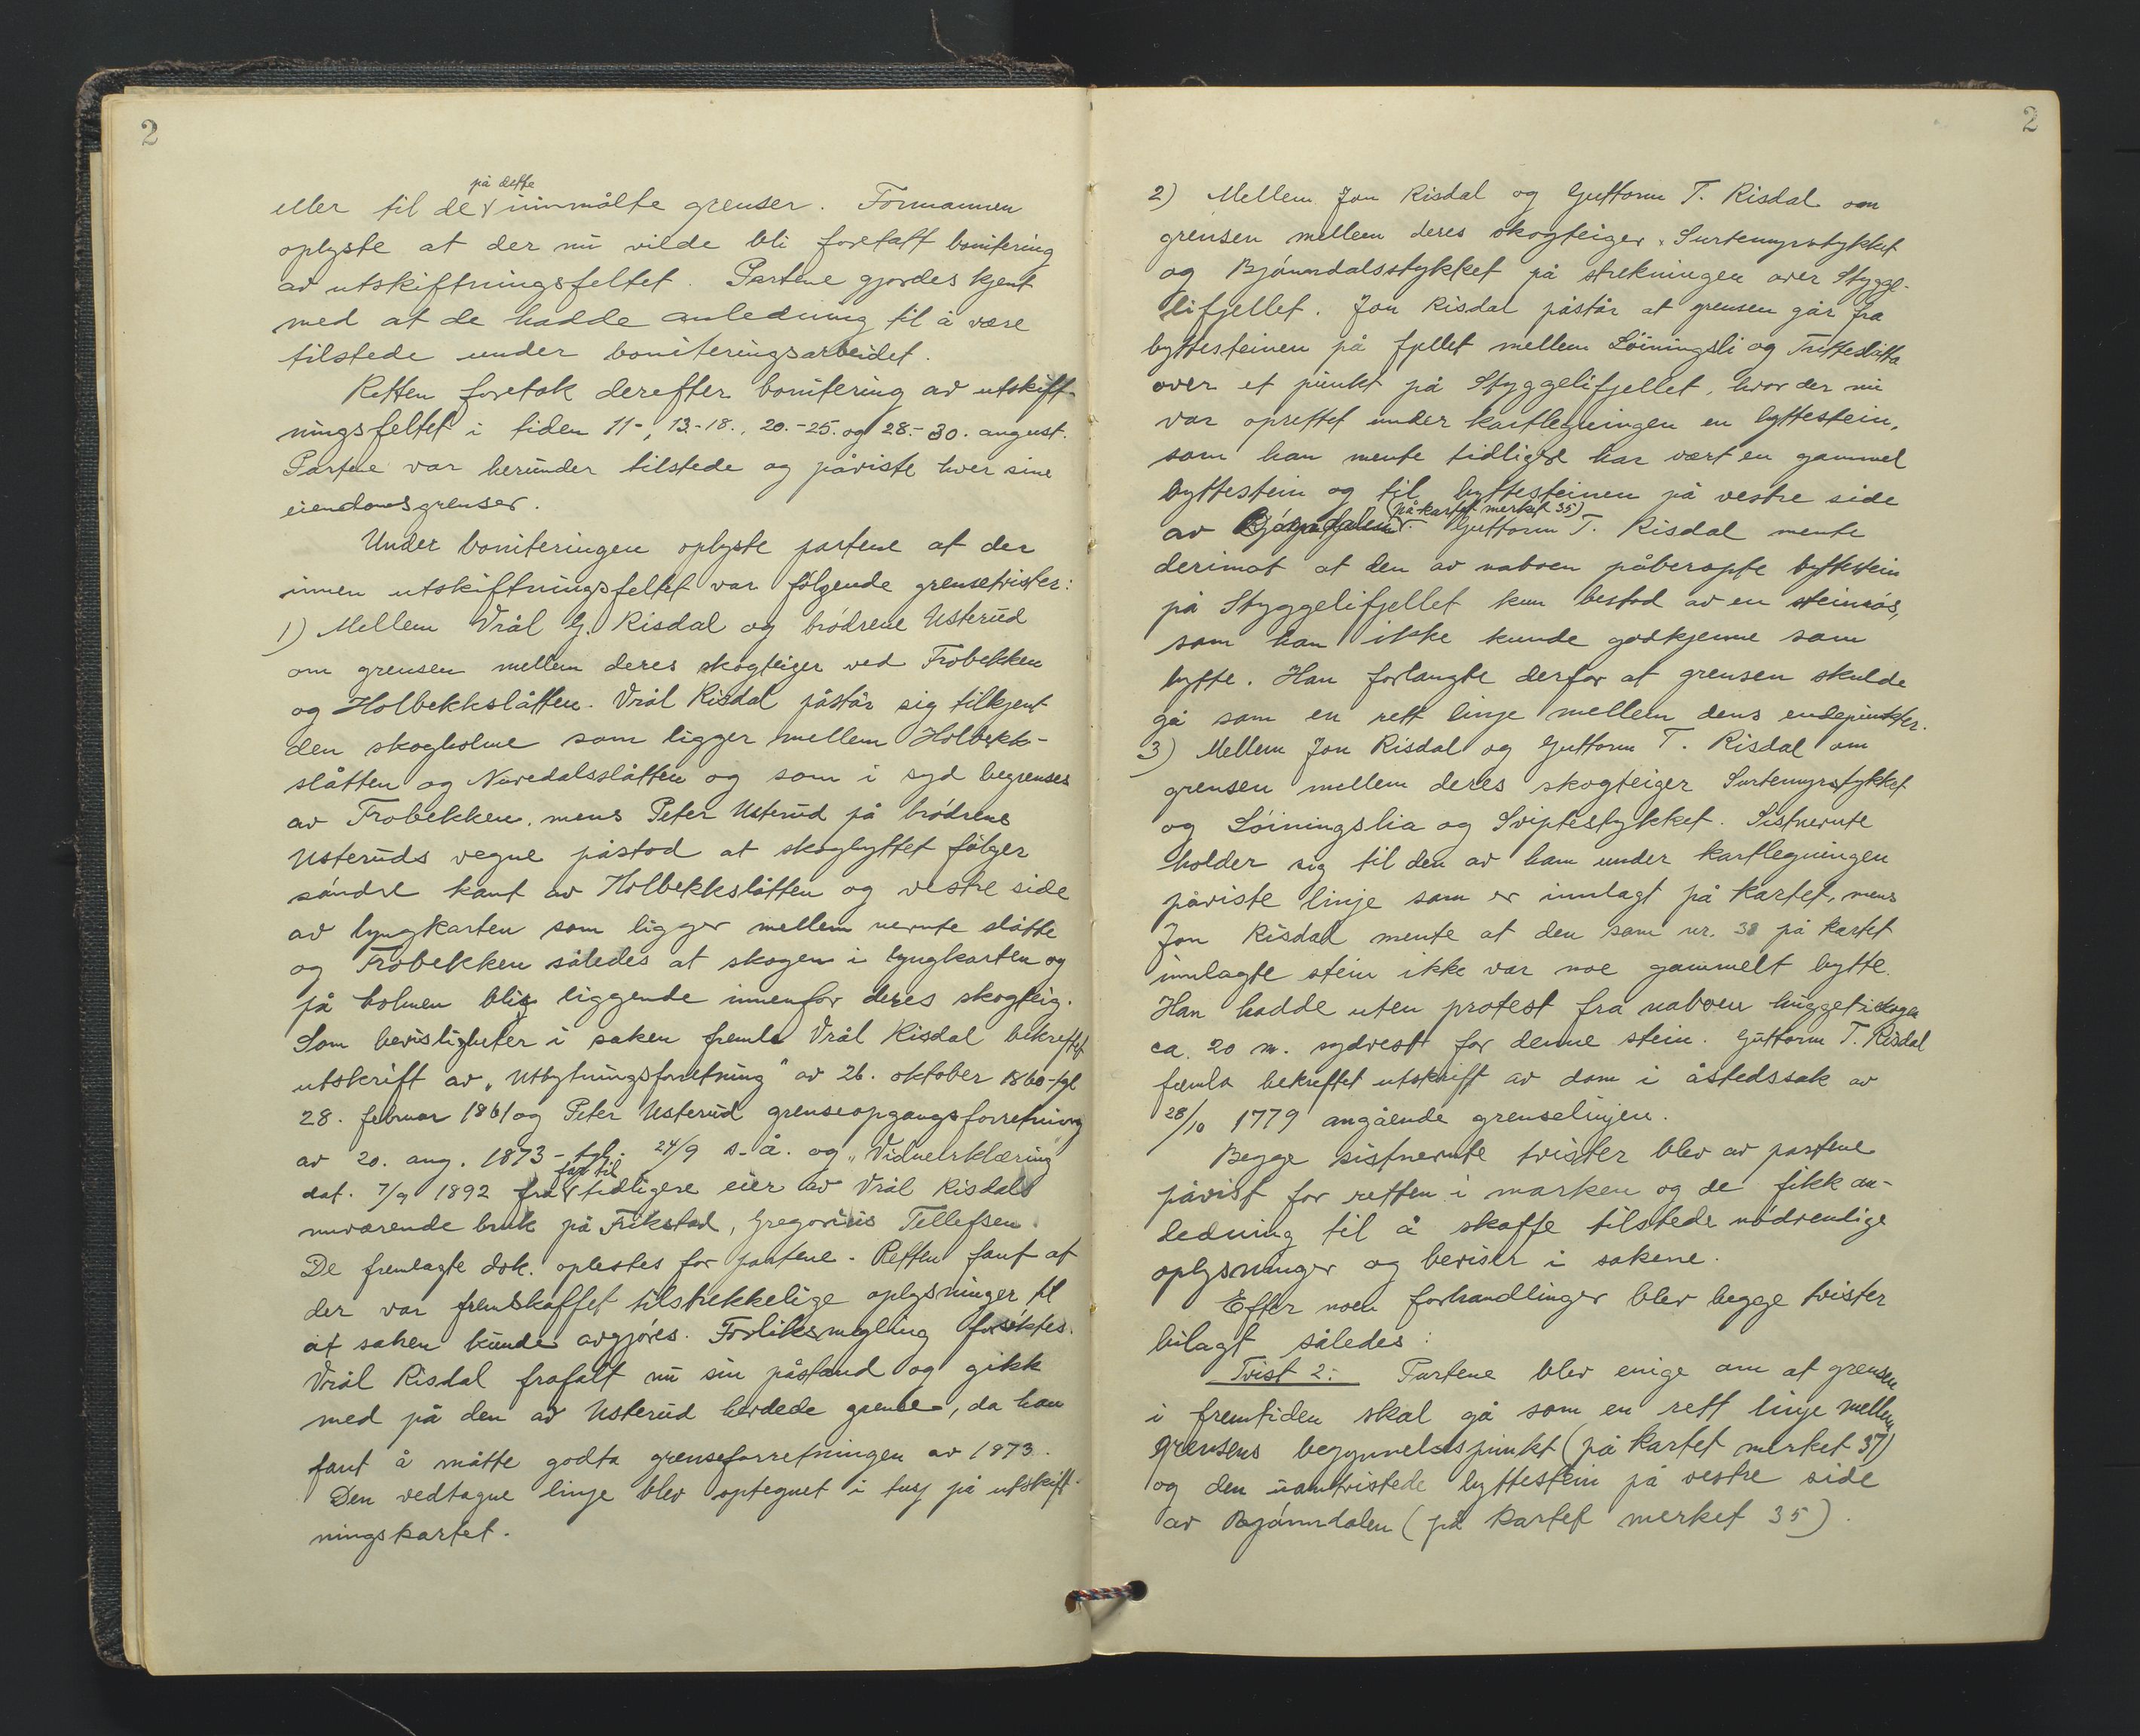 2
på dette
eller til de innmålte grenser. Formannen
oplyste at der nu vilde bli foretatt bonitering
av utskiftningsfeltet. Partene gjordes kjent
med at de hadde anledning til å være
tilstede under boniteringsarbeidet.
Retten foretok derefter bonitering av utskift-
ningsfeltet i tiden 11-, 13.-18., 20.-25. og 28.-30. august.
Partene var herunder tilstede og påviste hver sine
eiendomsgrenser.
Under boniteringen oplyste partene at der
innen utskiftningsfeltet var følgende grensetvister:
1) Mellem Vrål G. Risdal og brødrene Usterud
om grensen mellem deres skogteiger ved Frobekken
og Holbekkslåtten. Vrål Risdal påstår sig tilkjent
den skogholme som ligger mellem Holbekk-
slåtten og Navedalsslåtten og som i syd begrenses
av Frobekken, mens Peter Usterud på brødrene
Usteruds vegne påstod at skogbyttet følger
søndre kant av Holbekkslåtten og vestre side
av lyngkarten som ligger mellem nevnte slåtte
og Frobekken således at skogen i lyngkarten og
på holmen blir liggende innenfor deres skogteig.
Som bevisligheter i saken fremla Vrål Risdal bekreftet
utskrift av "Utbytningsforretning" av 26. oktober 1860 - tgl
28. februar 1861 og Peter Usterud grenseopgangsforretning
av 20. aug. 1873 - tgl. 24/9 s. å. og "Vidneerklæring"
far til
dat. 7/9 1892 fra tidligere eier av Vrål Risdals
nuværende bruk på Frikstad, Gregorius Tellefsen.
De fremlagte dok. oplestes for partene. Retten fant at
der var fremskaffet tilstrekkelige oplysninger til
at saken kunde avgjøres. Forliksmegling forsøktes.
Vrål Risdal frafalt nu sin påstand og gikk
med på den av Usterud hevdede grense, da han
fant å måtte godta grenseforretningen av 1873.
Den vedtagne linje blev optegnet i tusj på utskift-
ningskartet.
2
2) Mellem Jon Risdal og Guttorm T. Risdal om
grensen mellem deres skogteiger Surtemyrstykket
og Bjønndalsstykket på strekningen over Stygge-
lifjellet. Jon Risdal påstår at grensen går fra
byttesteinen på fjellet mellem Løiningsli og
over et punkt på Styggelifjellet, hvor der nu
var oprettet under kartlegningen en byttestein,
som han mente tidligere har vært en gammel
byttestein og til byttesteinen på vestre side
(på kartet merket 35)
av Bjønndalen. Guttorm T. Risdal mente
derimot at den av naboen påberopte byttestein
på Styggelifjellet kun bestod av en steinrøs,
som han ikke kunde godkjenne som
bytte. Han forlangte derfor at grensen skulde
gå som en rett linje mellem dens endepunkter.
3) Mellem Jon Risdal og Guttorm T. Risdal om
grensen mellem deres skogteiger Surtemyrstykket
og Løiningslia og Sviptestykket. Sistnevnte
holder sig til den av ham under kartlegningen
påviste linje som er innlagt på kartet, mens
Jon Risdal mente at den som nr. 38 på kartet
innlagte stein ikke var noe gammelt bytte.
Han hadde uten protest fra naboen hugget i skogen
ca. 20 m. sydvest for denne stein. Guttorm T. Risdal
femla bekreftet utskrift av dom i åstedssak av
28/10 1779 angående grenselinjen.
Begge sistnevnte tvister blev av partene
påvist for retten i marken og de fikk an-
ledning til å skaffe tilstede nødvendige
oplysninger og beviser i sakene.
Efter noen forhandlinger blev begge tvister
bilagt således:
Tvist 2: Partene blev enige om at grensen
i fremtiden skal gå som en rett linje mellem
grensens begynnelsespunkt (på kartet merket 37)
og den uomtvistede byttestein på vestre side
av Bjønndalen (på kartet merket 35).